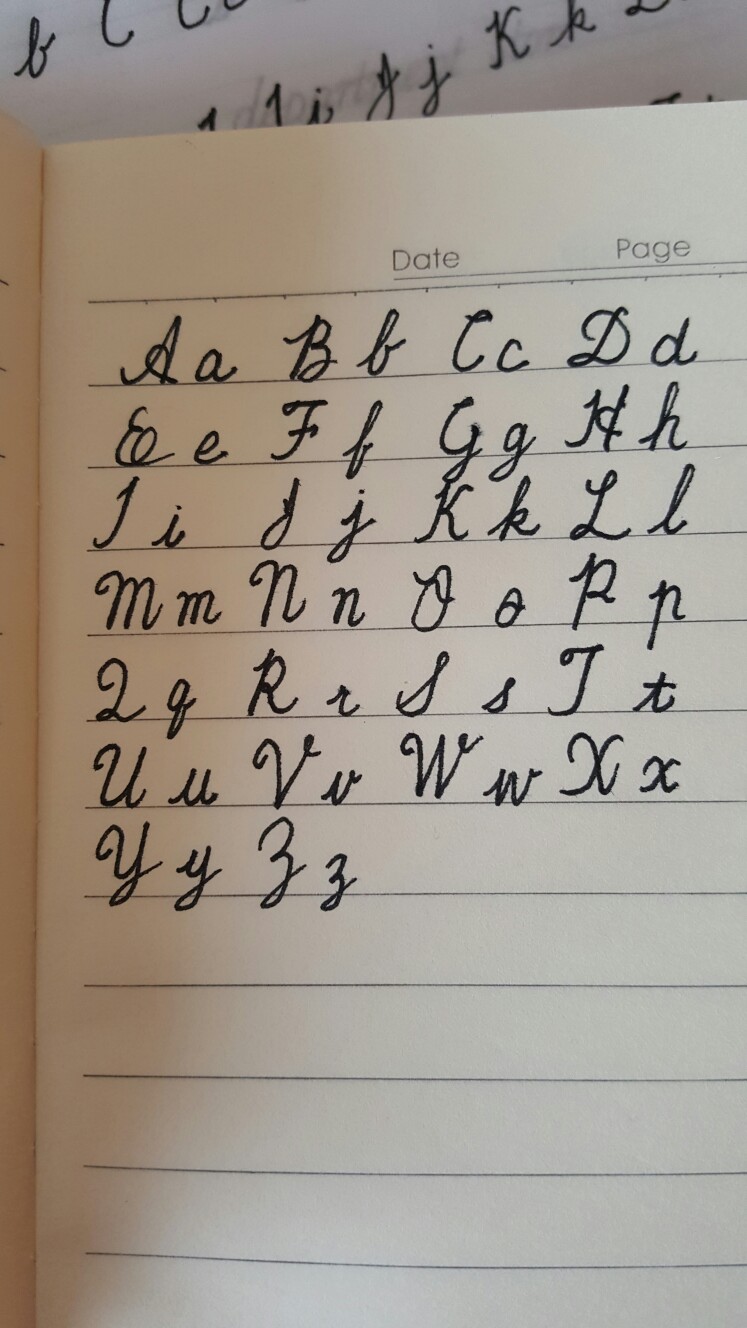 b C C
J i J j K k
Date Page
A a B b C c D d
E e F f G g H h
I i J j K k L l
M m N n O o P p
Q q R r S s T t
U u V v W w X x
Y y Z z